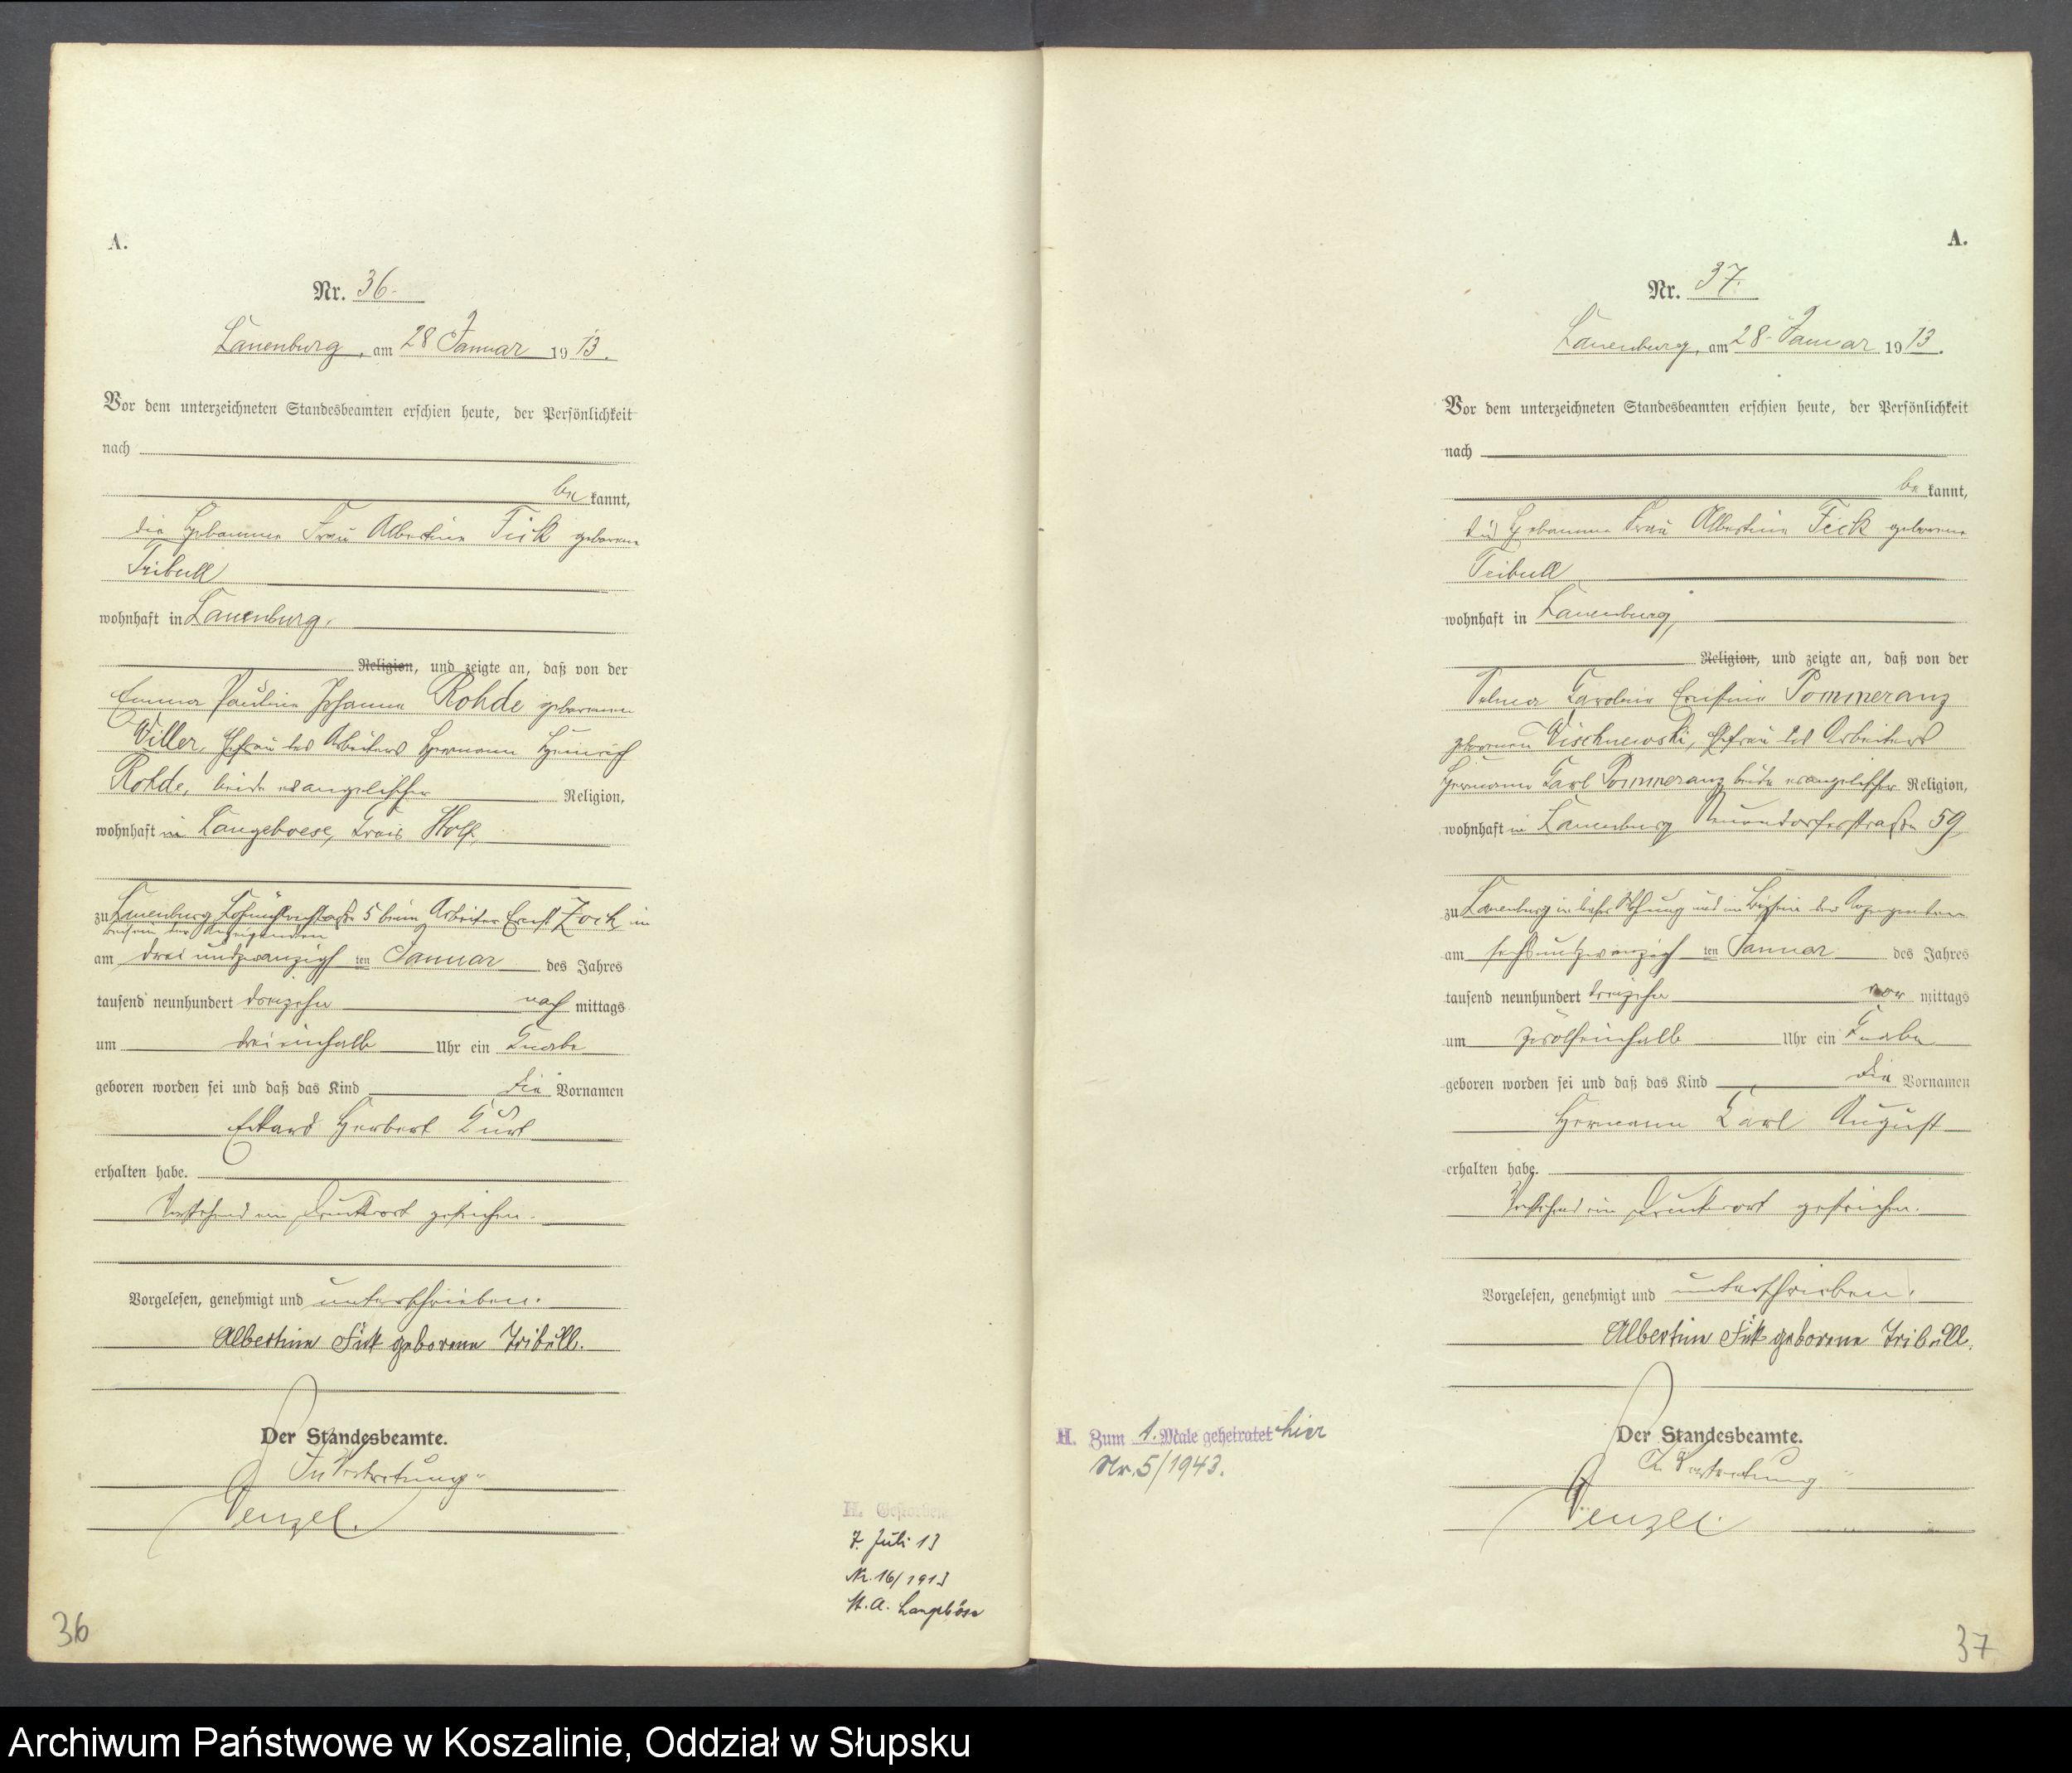 A.
Nr. 36.
Lauenburg, am 28 Januar 1913.
Vor dem unterzeichneten Standesbeamten erschien heute, der Persönlichkeit
nach
be kannt,
die Hebamme Frau Albertine Fick geborene
Tribull
wohnhaft in Lauenburg,
Religion, und zeigte an, daß von der
Emma Pauline Johanna Rohde geborenen
Willer, Ehefrau des Arbeiters Hermann Heinrich
Rohde, beide evangelischer Religion,
wohnhaft in Langeboese, Kreis Stolp,
zu Lauenburg 5 beim Arbeiter Ernst Zoch, im
Beisein der Anzeigenden
am dreiundzwanzigsten Januar des Jahres
tausend neunhundert dreizehn nach mittags
um dreieinhalb Uhr ein Knabe
geboren worden sei und daß das Kind die Vornamen
Herbert Kurt
erhalten habe.
Vorstehend ein Druckwort gestrichen.
Vorgelesen, genehmigt und unterschrieben.
Albertine Fick geborene Tribull.
Der Standesbeamte.
In Vertretung
Wenzel.
H. Gestorben
7. Juli 13
Nr. 16/1913
St. A. Langböse
36
A.
Nr. 37.
Lauenburg, am 28. Januar 1913.
Vor dem unterzeichneten Standesbeamten erschien heute, der Persönlichkeit
nach
be kannt,
die Hebamme Frau Albertine Fick geborene
Tribull
wohnhaft in Lauenburg,
Religion, und zeigte an, daß von der
Selma Karoline Ernstine Pommeranz
geborenen Wischnewski, Ehefrau des Arbeiters
Hermann Karl Pommeranz beide evangelischer Religion,
wohnhaft in Lauenburg Neuendorferstraße 59,
zu Lauenburg in dieser Wohnung und im Beisein der Anzeigenden
am sechsundzwanzigsten Januar des Jahres
tausend neunhundert dreizehn vor mittags
um zwölfeinhalb Uhr ein Knabe
geboren worden sei und daß das Kind die Vornamen
Hermann Karl August
erhalten habe.
Vorstehend ein Druckwort gestrichen.
Vorgelesen, genehmigt und unterschrieben.
Albertine Fick geborene Tribull.
Der Standesbeamte.
In Vertretung
Wenzel.
H. Zum 1. Male geheiratet hier
Nr. 5/1943.
37
Archiwum Państwowe w Koszalinie, Oddział w Słupsku